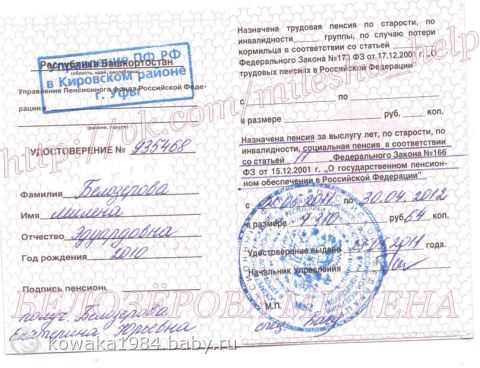 Республика Башкортостан
Управление ПФ РФ
в Кировском районе
г. Уфы
(область, край, республика)
Управление Пенсионного фонда Российской Феде-
рации в
(район, город)
УДОСТОВЕРЕНИЕ № 935468
Фамилия Белозерова
Имя Милена
Отчество Эдуардовна
Год рождения 2010
Подпись пенсион
получ. Белозерова
Екатерина Юрьевна
Назначена трудовая пенсия по старости, по
инвалидности группы, по случаю потери
кормильца в соответствии со статьей
Федерального Закона №173 ФЗ от 17.12.2001 г. „О
трудовых пенсиях в Российской Федерации"
с по
в размере руб. коп.
Назначена пенсия за выслугу лет, по старости, по
инвалидности, социальная пенсия в соответствии
со статьей 11 Федерального Закона №166
ФЗ от 15.12.2001 г. „О государственном пенсион-
ном обеспечении в Российской Федерации"
с 2011 по 30.04.2012
в размере руб. 64 коп.
Удостоверение выдано 2011 года.
Начальник Управления
М.П.
спец.
БЕЛОЗЁРОВА МИЛЕНА
http://ok.com/mileshke.help
kowaka1984.baby.ru